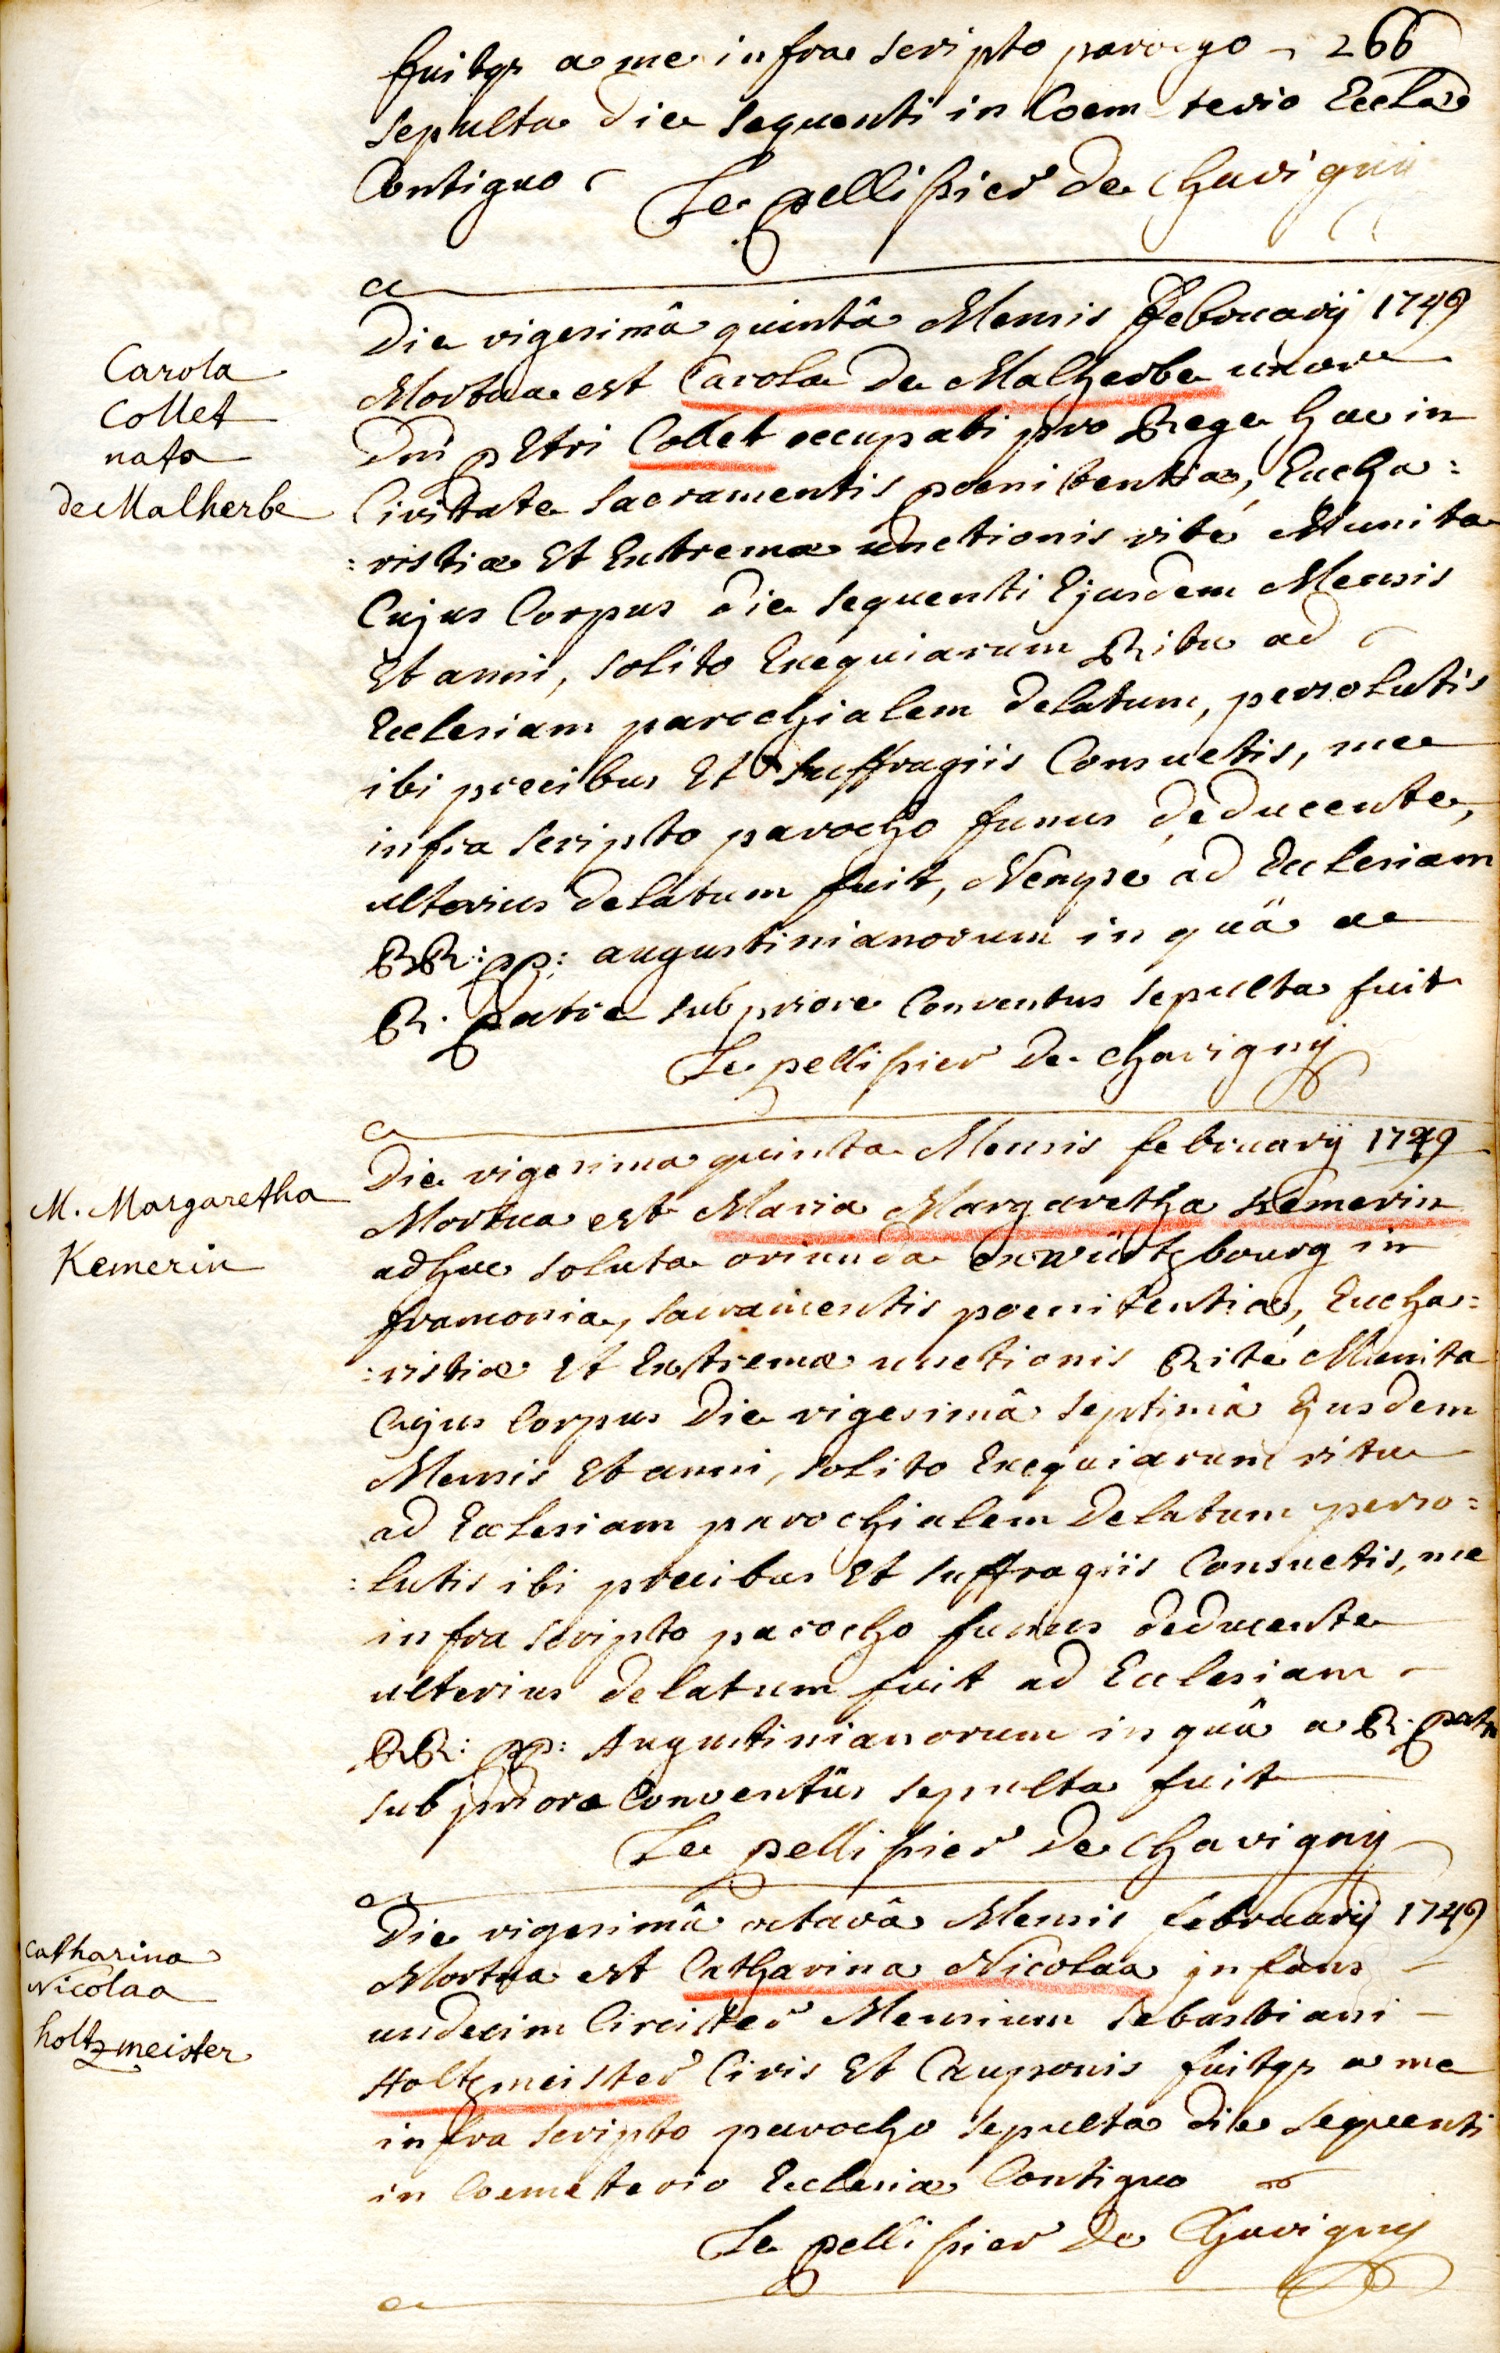 fuitqs a me infra scripto parocho 266
sepulta die sequenti in Coemeterio Eccla
Contiguo
Le pellissier de chavigny
Die vigesimâ quintâ Mensis Februarij 1749
Mortua est Carola de Malherbe uxor
Dni petri Collet occupati pro Rege hac in
Civitate sacramentis poenitentiæ, Eucha:
:ristiæ Et Extremæ unctionis rité Munita
Cujus Corpus die sequenti Ejusdem Mensis
Et anni, solito Exequiarum Ritu ad
Ecclesiam parochialem delatum, persolutis
ibi precibus Et suffragiis Consuetis, me
infra scripto parocho funus deducente,
ulterius delatum fuit, Nempe ad Ecclesiam
RR: pp: augustinianorum in quâ a
R. patre subpriore Conventus sepulta fuit
Le pellissier de chavigny
Die vigesima quinta Mensis februarij 1749
Mortua est Maria Margaretha Kemerin
adhuc soluta oriunda ex würtzbourg in
franconia, sacramentis poenitentiæ, Eucha:
:ristiæ Et Extremæ unctionis Rité Munita
Cujus Corpus Die vigesimâ septimâ Ejusdem
Mensis Et anni, solito Exequiarum ritu
ad Ecclesiam parochialem delatum perso:
:lutis ibi precibus Et suffragiis Consuetis, me
infra scripto parocho funus deducente
ulterius delatum fuit ad Ecclesiam
RR: pp: Augustinianorum in quâ a R. patre
subpriore Conventûs sepulta fuit
Le pellissier de chavigny
Die vigesimâ octavâ Mensis februarij 1749
Mortua est Catharina Nicolaa infans
undecim Circiter Mensium sebastiani
Holtzmeister Civis Et Cauponis fuitqs a me
infra scripto parocho sepulta die sequenti
in Coemeterio Ecclesiæ Contiguo
Le pellissier de Chavigny
Carola
Collet
nata
de Malherbe
M. Margaretha
Kemerin
Catharina
Nicolaa
holtzmeister